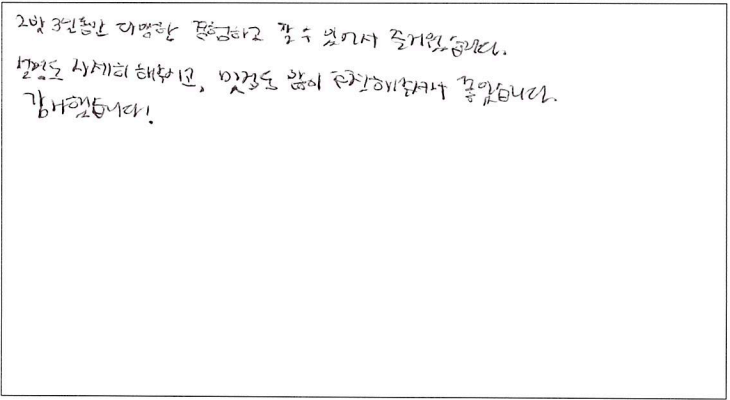 2박 3일동안 다양한 체험하고 할 수 있어서 즐거웠습니다.
설명도 자세히 해주시고, 맛집도 많이 추천해주셔서 좋았습니다.
감사했습니다!